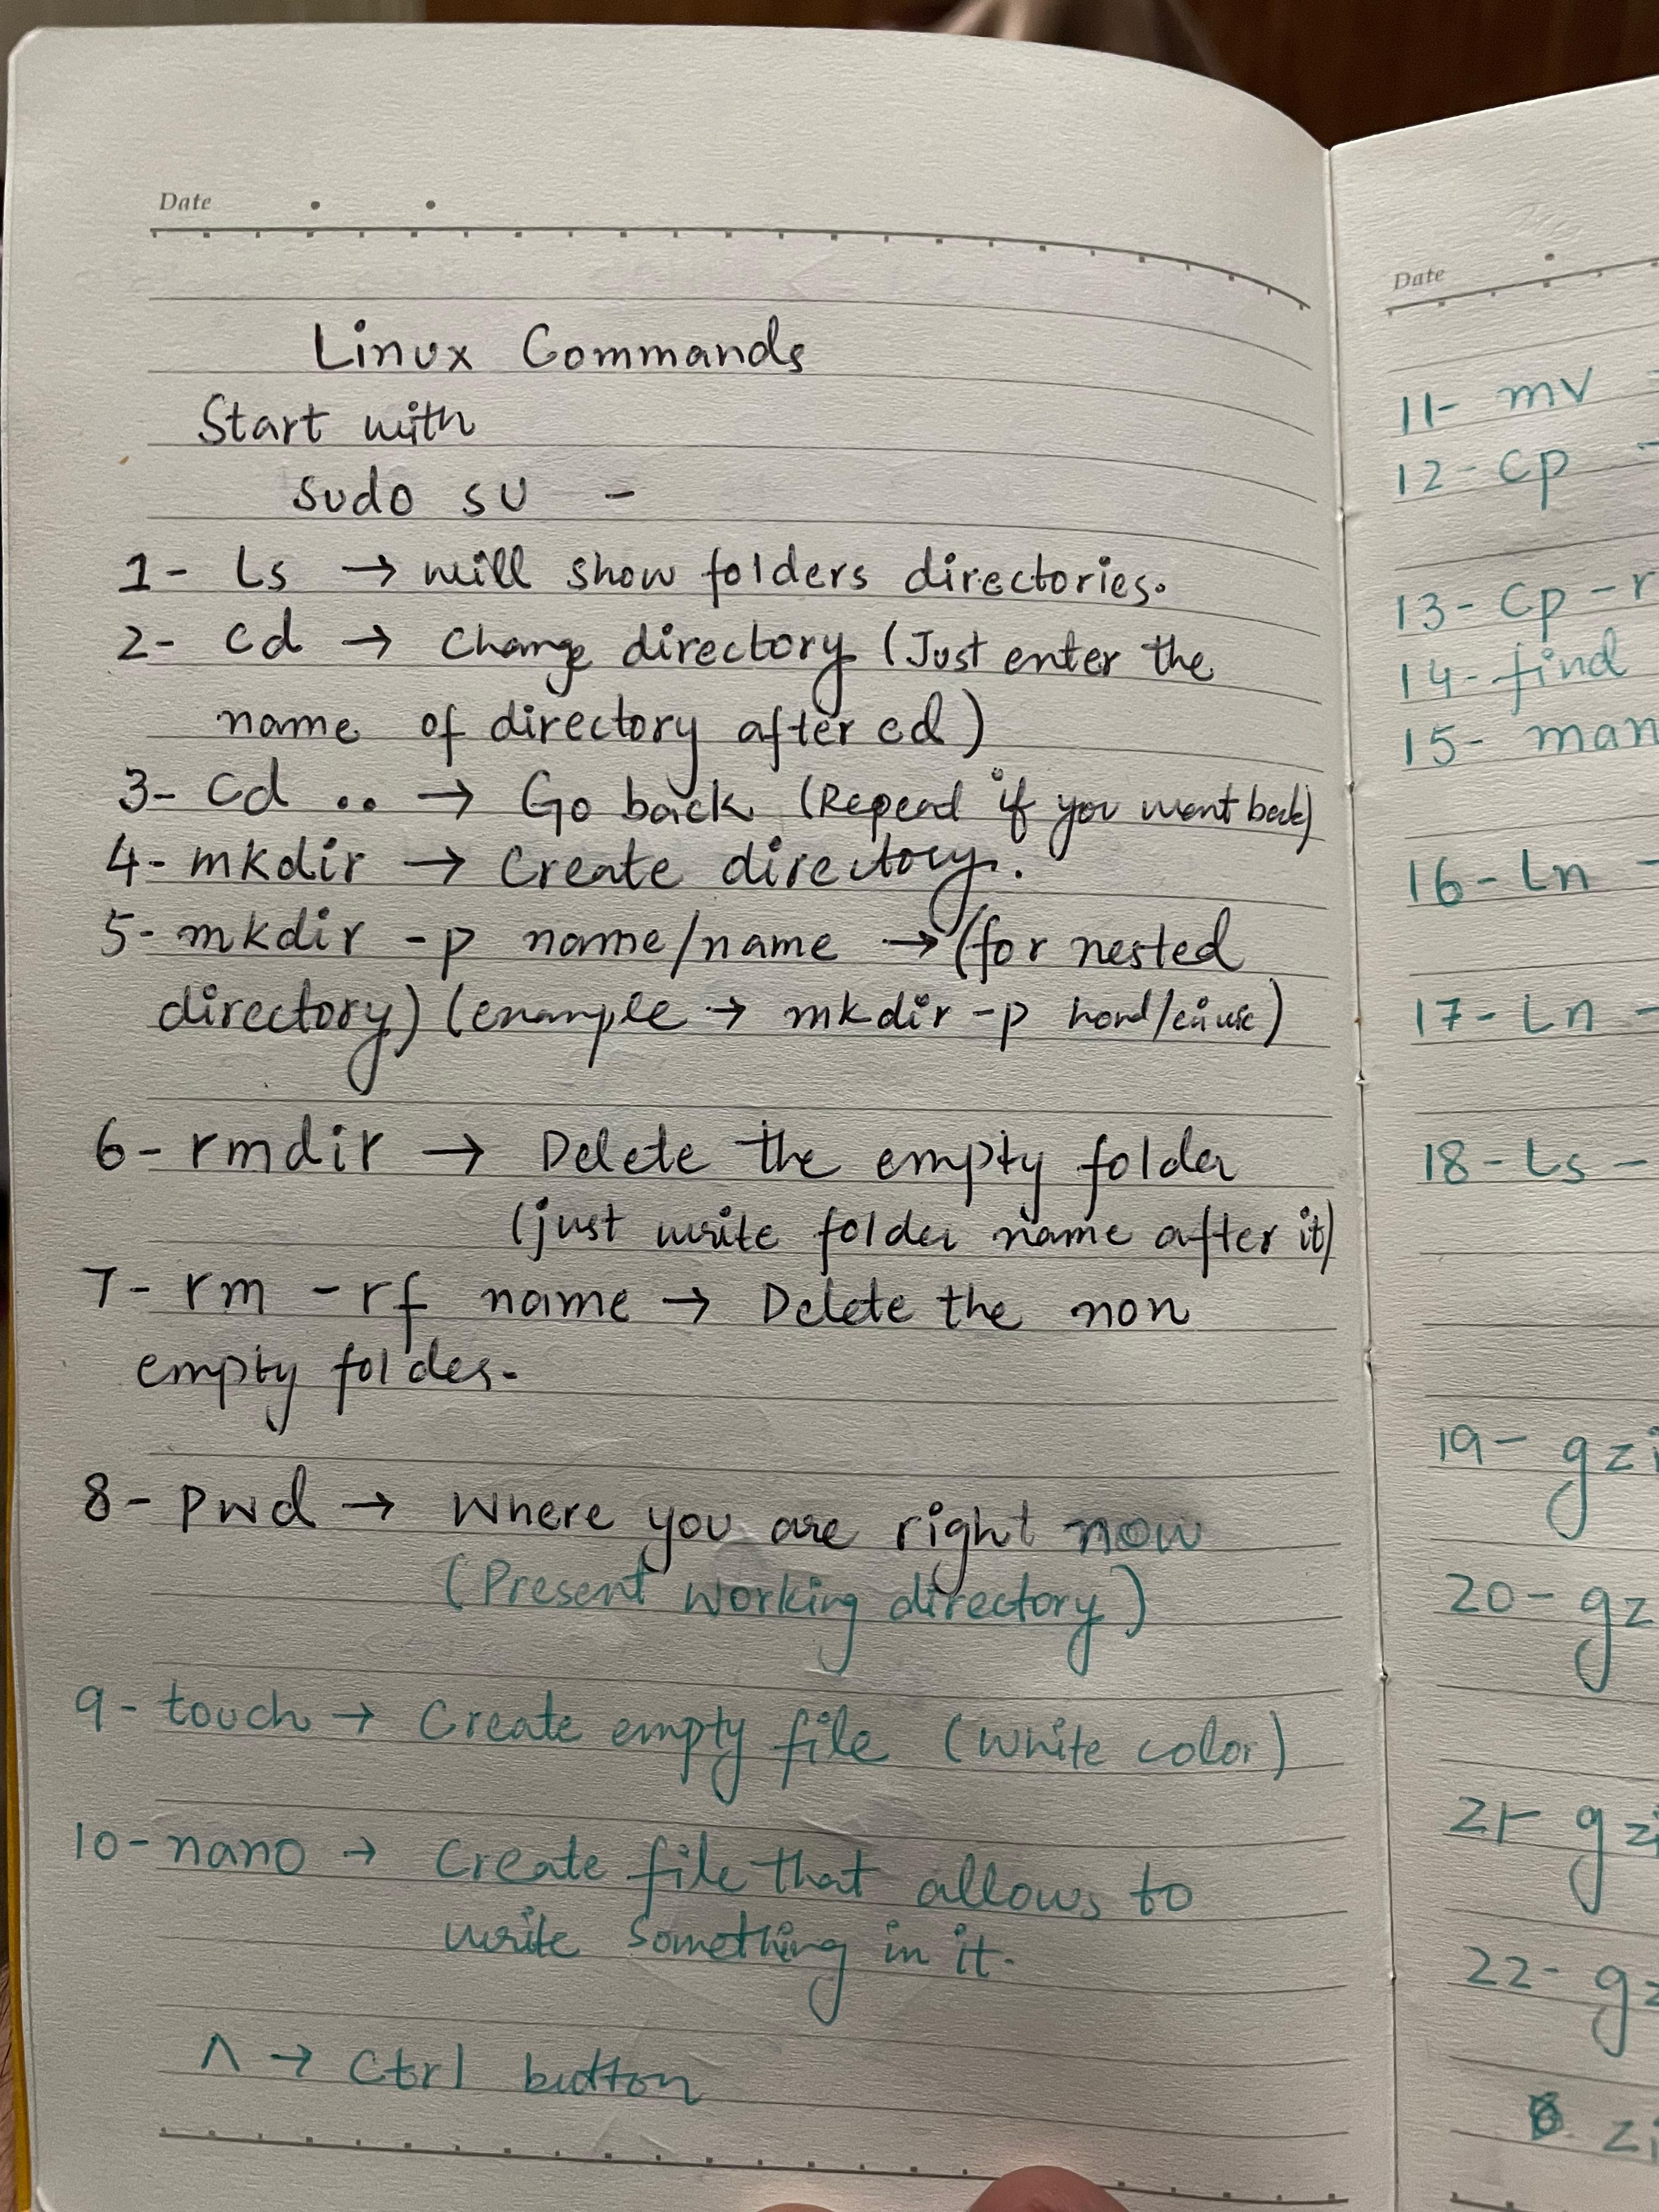 Date
Linux Commands
Start with
sudo su -
1- Ls → will show folders directories.
2- cd → Change directory (Just enter the
name of directory after cd)
3- cd .. → Go back (Repead if you want back)
4- mkdir → Create directory.
5- mkdir -p name/name → (for nested
directory) (example → mkdir -p
6- rmdir → Delete the empty folder
(just write folder name after it)
7- rm -rf name → Delete the non
empty folder.
8- pwd → Where you are right now
(Present working directory)
9- touch → Create empty file (White color)
10- nano → Create file that allows to
write something in it.
^ → Ctrl button
Date
11- mv
12- cp -
13- cp -r
14- find
15- man
16- Ln -
17- Ln -
18- Ls -
19- gzi
20- gz
21- gzi
22- gz
zi